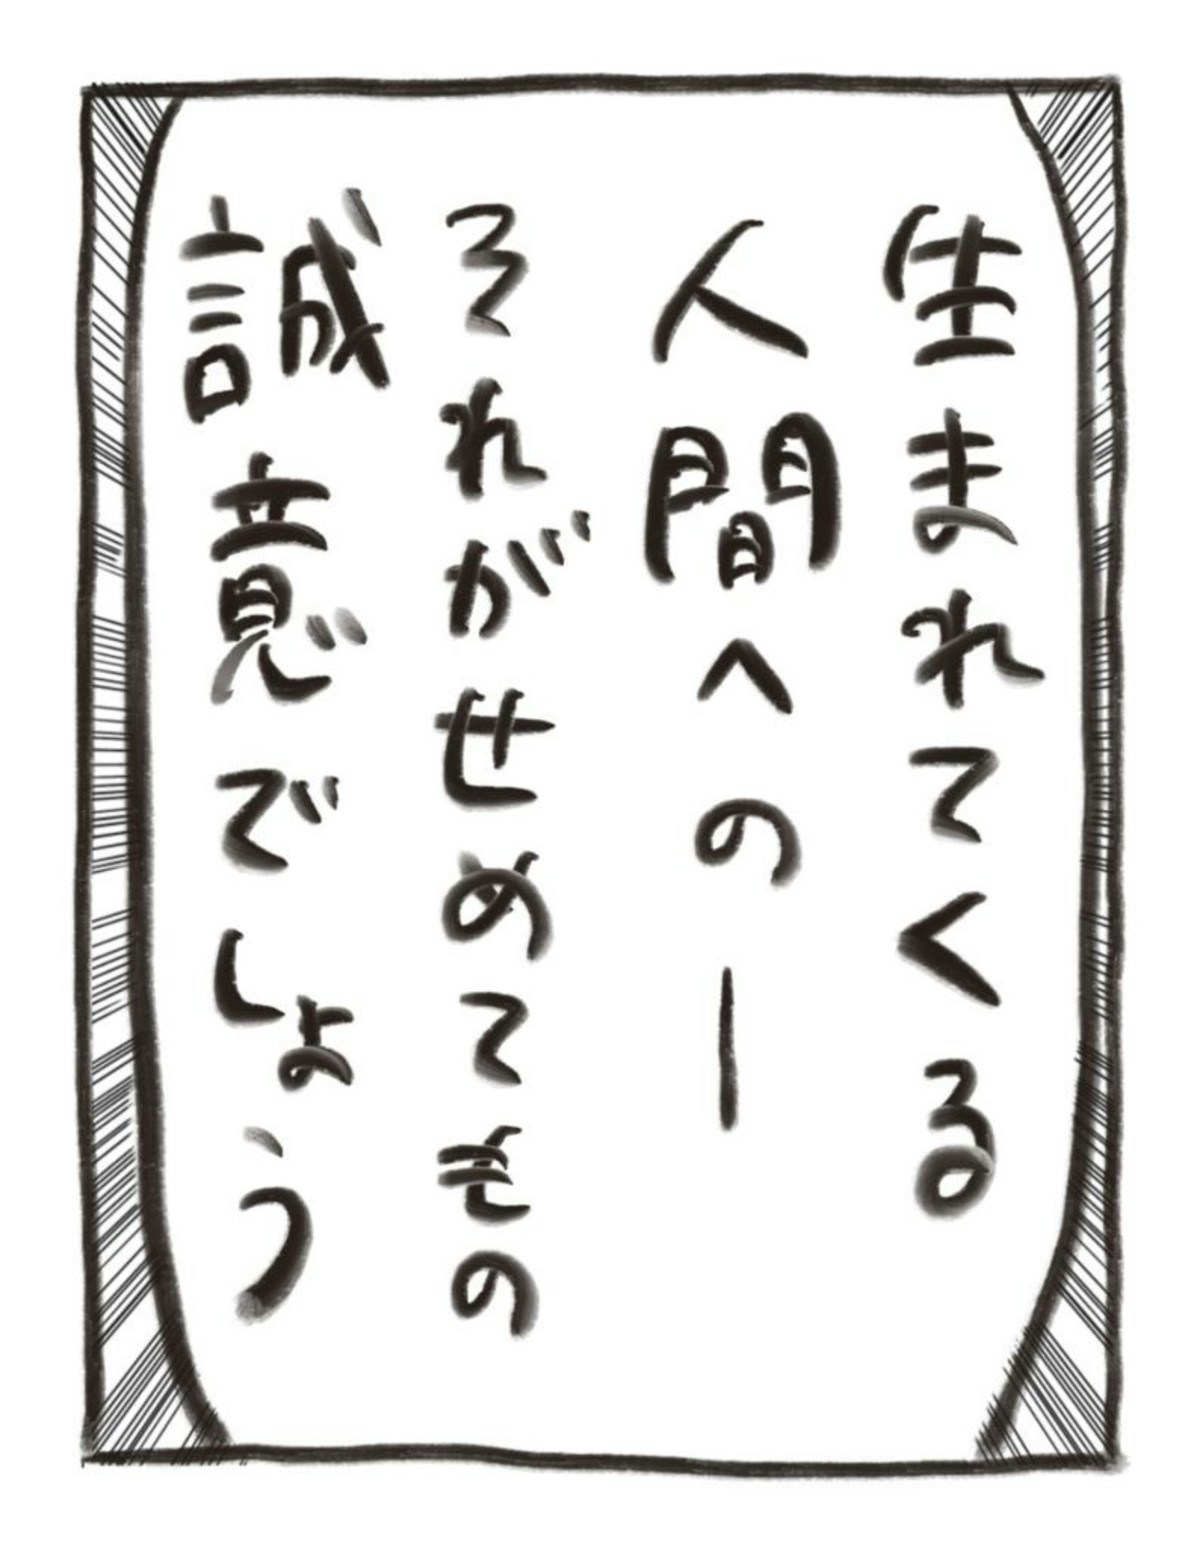 生まれてくる
人間への―
それがせめてもの
誠意でしょう